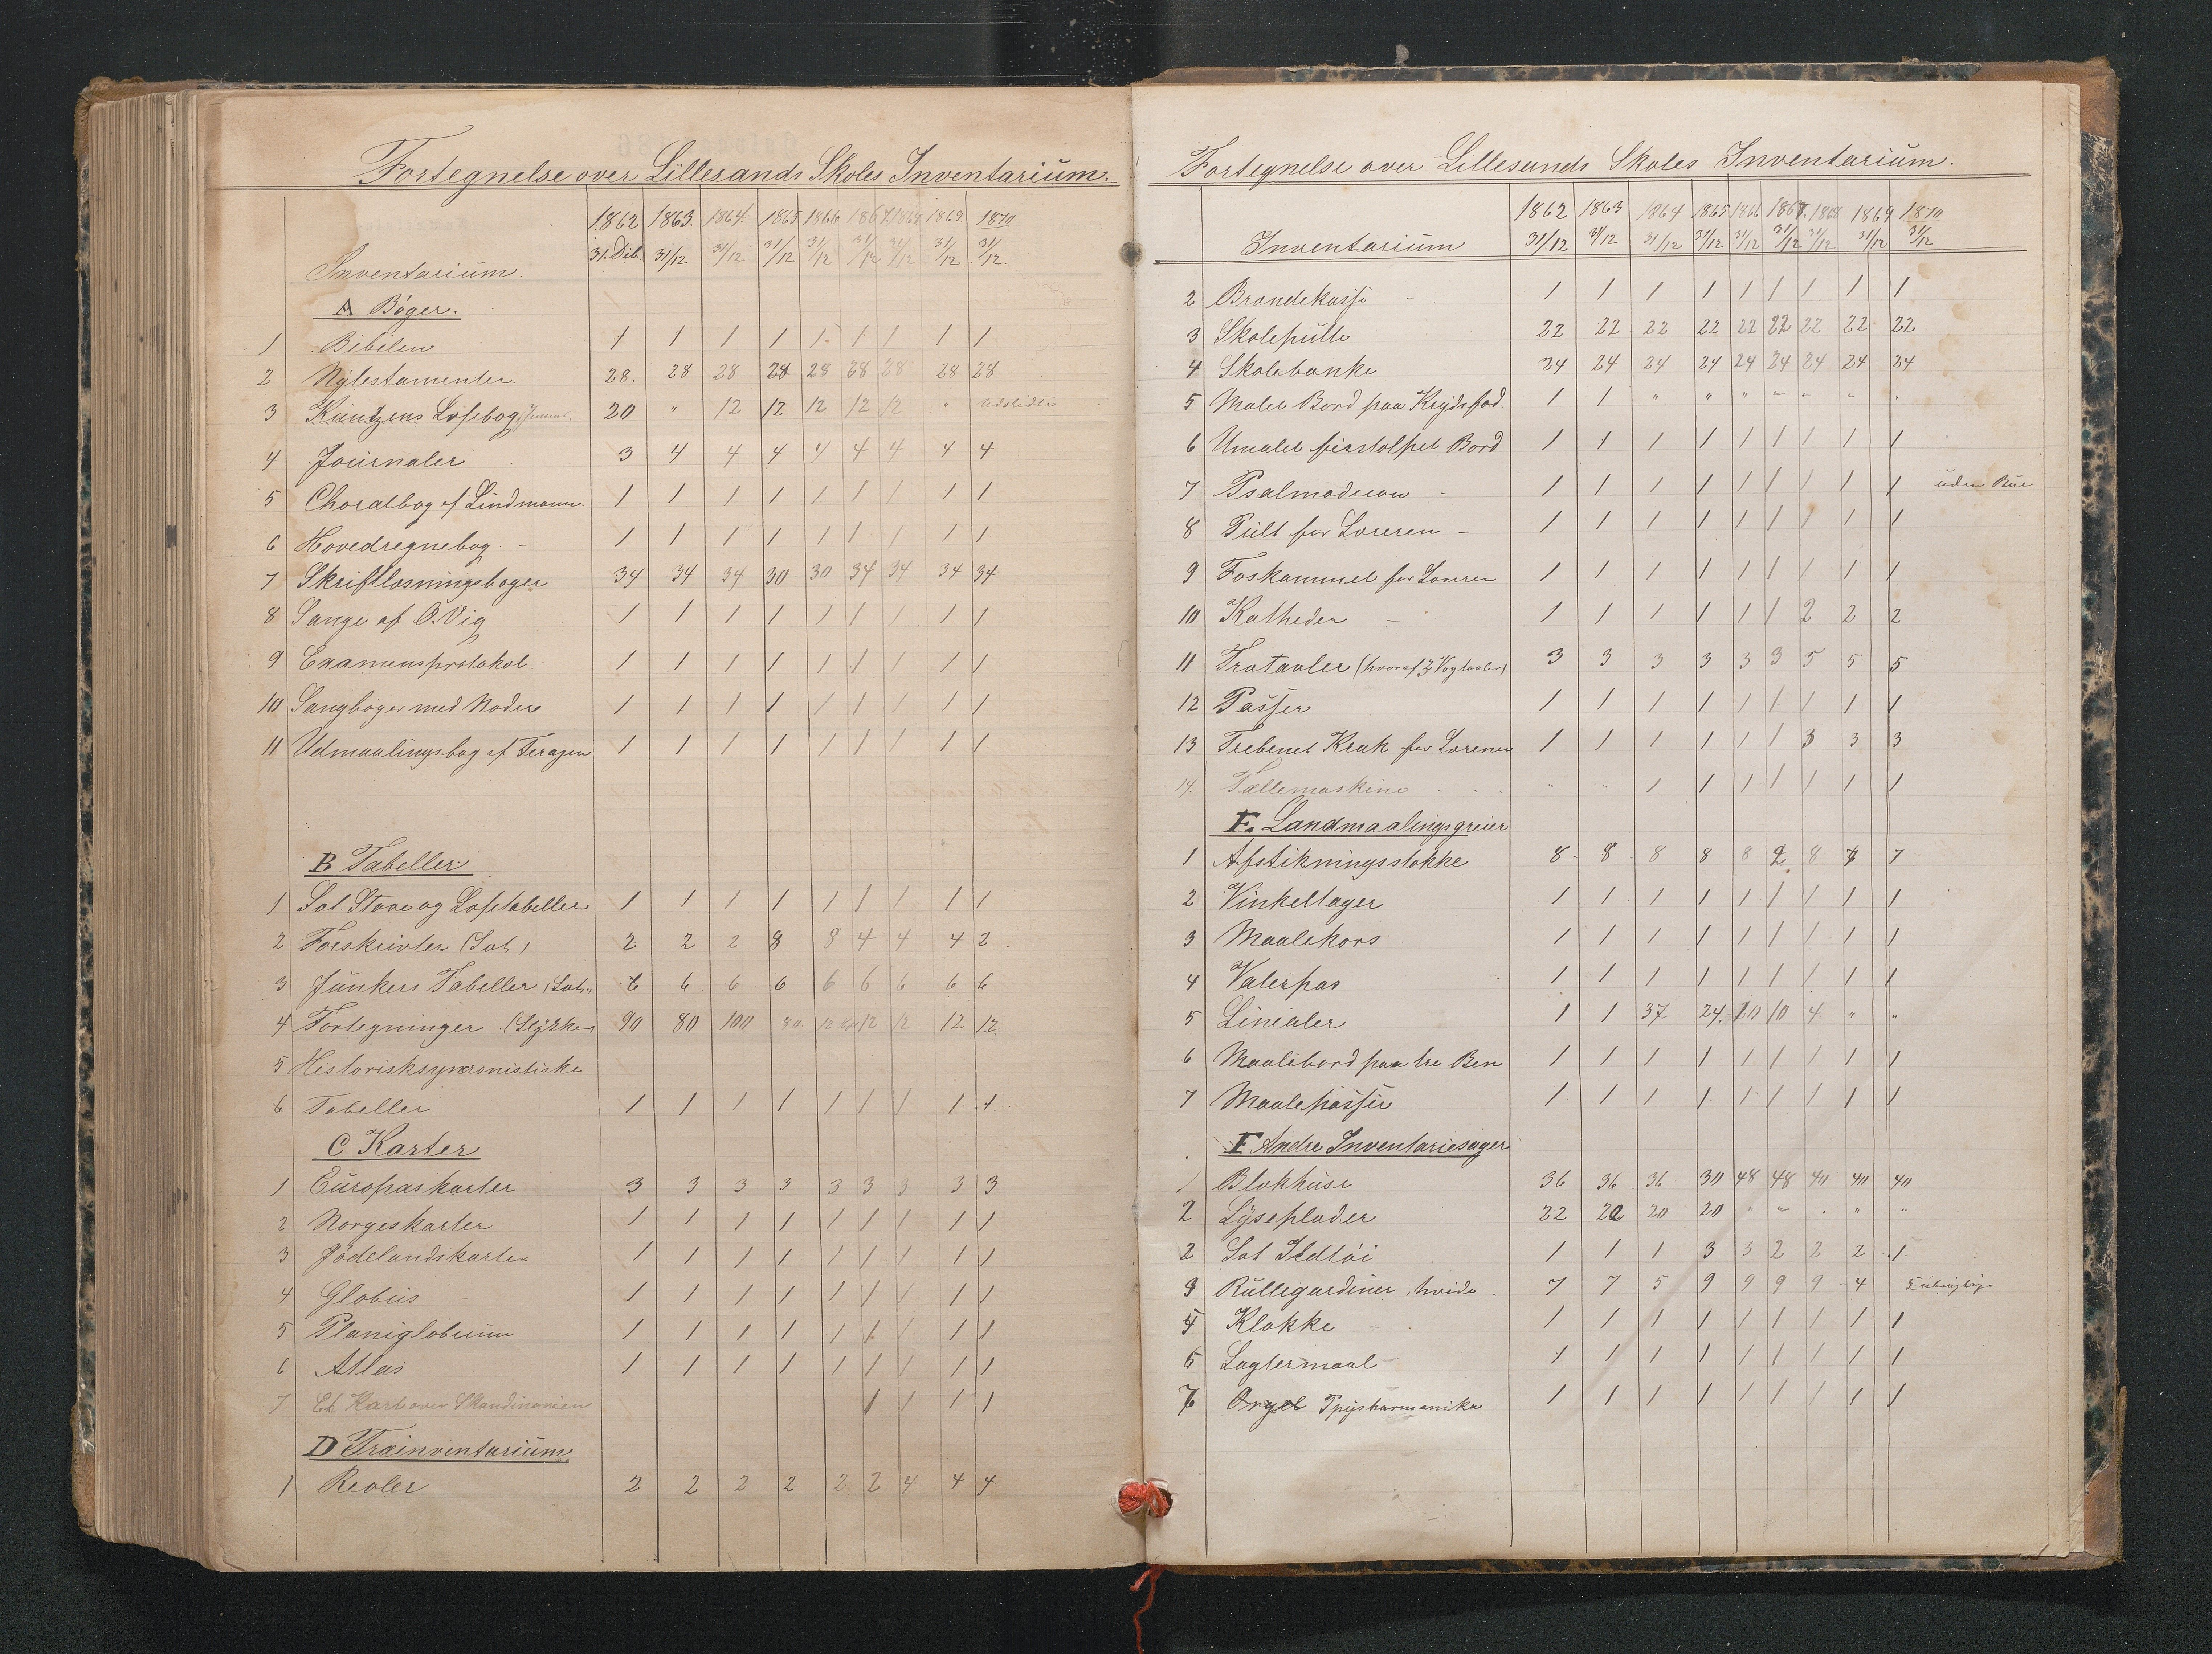 Fortegnelse over Lillesands Skoles Inventarium.
Inventarium. 1862 31. Deb. 1863. 31/12 1864. 31/12 1865 31/12 1866 31/12 1867. 31/12 1868 31/12 1869. 31/12 1870 31/12.
A Bøger.
1 Bibelen 1 1 1 1 1 1 1 1 1
2 Nytestamenter. 28. 28 28 28 28 28 28 28 28
3 Kuntzens Læsebog 20 " 12 12 12 12 12 " Udslidte
4 Journaler 3 4 4 4 4 4 4 4 4
5 Choralbog af Lindmann. 1 1 1 1 1 1 1 1 1
6 Hovedregnebog - 1 1 1 1 1 1 1 1 1
7 Skriftlæsningsbøger 34 34 34 30 30 34 34 34 34
8 Sange af O. Vig 1 1 1 1 1 1 1 1 1
9 Examensprotokol. 1 1 1 1 1 1 1 1 1
10 Sangbøger med Noder 1 1 1 1 1 1 1 1 1
11 Udmaalingsbog af Feragen 1 1 1 1 1 1 1 1 1
B Tabeller
1 Sæt Stave og Læsetabeller 1 1 1 1 1 1 1 1 1
2 Forskrivter (Sæt) 2 2 2 8 8 4 4 4 2
3 Junkers Tabeller (Sæt) 6 6 6 6 6 6 6 6 6
4 Fortegninger (Stykker) 90 80 100 80. 12 12 12 12 12.
5 Historisksynkronistiske
6 Tabeller 1 1 1 1 1 1 1 1 1
C Karter
1 Europaskarter 3 3 3 3 3 3 3 3 3
2 Norgeskarter 1 1 1 1 1 1 1 1 1
3 Jödelandskarter 1 1 1 1 1 1 1 1 1
4 Globus - 1 1 1 1 1 1 1 1 1
5 Planiglobium 1 1 1 1 1 1 1 1 1
6 Atlas 1 1 1 1 1 1 1 1 1
7 Et Kart over Skandinavien 1 1 1 1
D Træinventarium
1 Reoler 2 2 2 2 2 2 4 4 4
Fortegnelse over Lillesands Skoles Inventarium.
Inventarium 1862 31/12 1863 31/12 1864 31/12 1865 31/12 1866 31/12 1867. 31/12 1868 31/12 1869 31/12 1870 31/12
2 Brændekasse - 1 1 1 1 1 1 1 1 1
3 Skolepulte 22 22 22 22 22 22 22 22 22
4 Skolebænke 24 24 24 24 24 24 24 24 24
5 Malet Bord paa Krydsfod 1 1 " " " " " " "
6 Umalet firstolpet Bord 1 1 1 1 1 1 1 1 1
7 Psalmodicon - 1 1 1 1 1 1 1 1 1 uden Bue
8 Pult for Læreren - 1 1 1 1 1 1 1 1 1
9 Foskammel for Læreren 1 1 1 1 1 1 1 1 1
10 Katheder - 1 1 1 1 1 1 2 2 2
11 Trætavler (hvoraf 2 Vægtavler) 3 3 3 3 3 3 5 5 5
12 Passer 1 1 1 1 1 1 1 1 1
13 Trebenet Krak for Læreren 1 1 1 1 1 1 3 3 3
14. Tællemaskine " " 1 1 1 1 1 1 1
E. Landmaalingsgreier
1 Afstikningsstokke 8 8 8 8 8 2 8 7 7
2 Vinkeltager 1 1 1 1 1 1 1 1 1
3 Maalekors 1 1 1 1 1 1 1 1 1
4 Vaterpas 1 1 1 1 1 1 1 1 1
5 Linealer 1 1 37 24. 10 10 4 " "
6 Maalebord paa tre Ben 1 1 1 1 1 1 1 1 1
7 Maalepasser 1 1 1 1 1 1 1 1 1
F Andre Inventariesager
1 Blækhuse 36 36 36 30 48 48 40 40 40
2 Lyseplader 22 22 20 20 " " " " "
2 Sæt Ildtöi 1 1 1 3 3 2 2 2 1
3 Rullegardiner, hvide 7 7 5 9 9 9 9 4
4 Klokke 1 1 1 1 1 1 1 1 1
5 Lagtermaal 1 1 1 1 1 1 1 1 1
6 Orgel 1 1 1 1 1 1 1 1 1